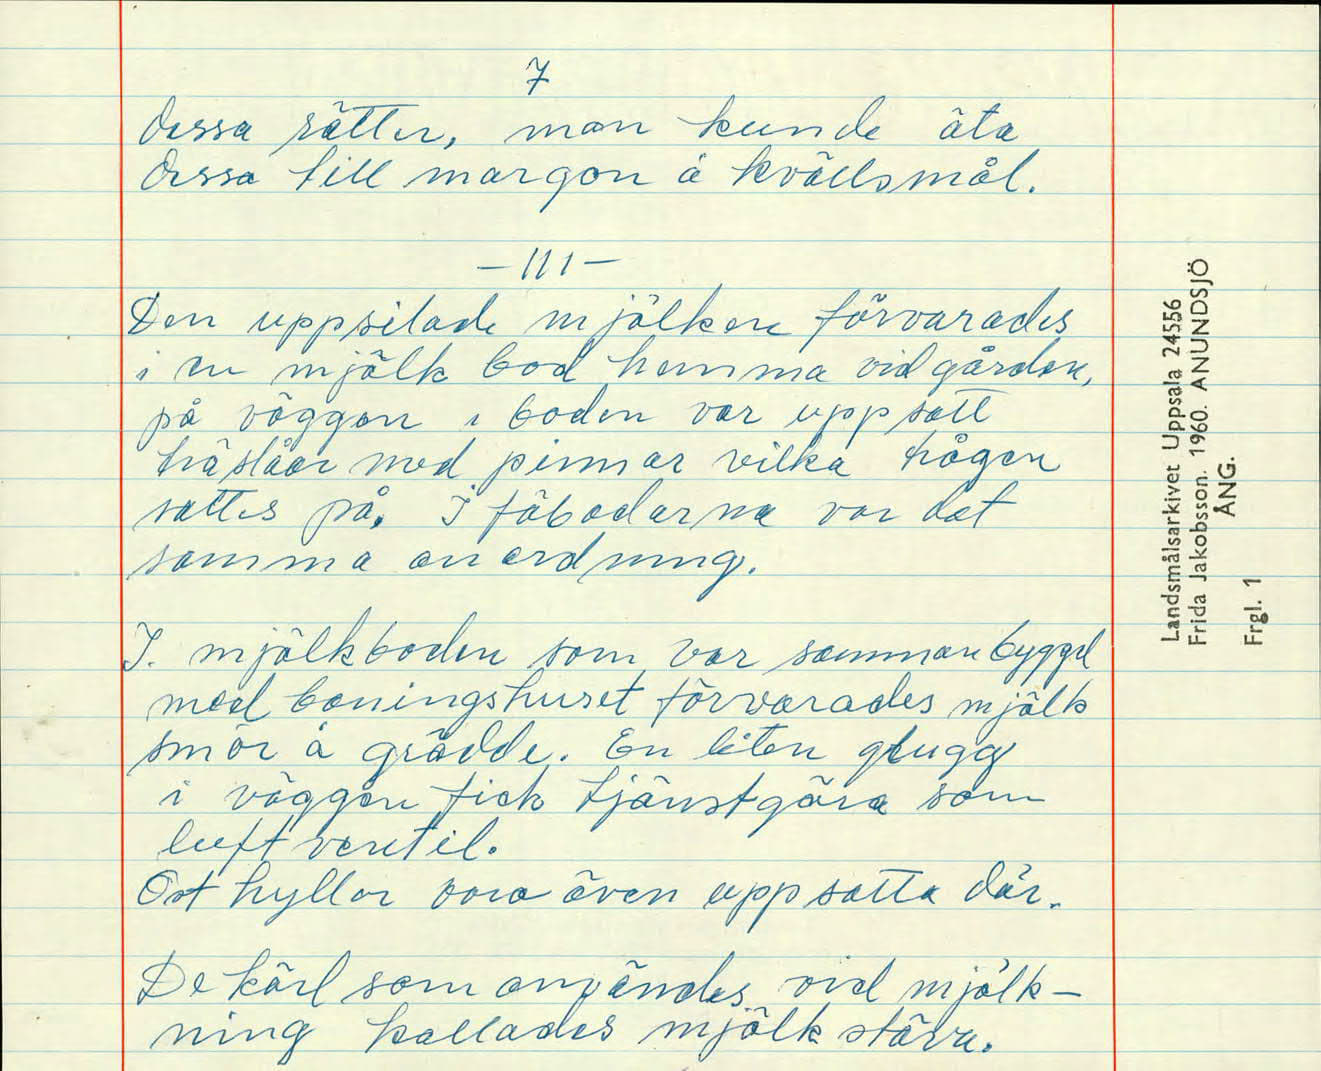 7
dessa rätter, man kunde äta
dessa till morgon å kvällsmål.
- 111 -
Den uppsilade mjölken förvarades
i en mjölk bod hemma vid gården,
på väggen i boden var uppsatt
träslåar med pinnar vilka trågen
sattes på. I fäbodarna var det
samma anordning.
I. mjölkboden som var sammanbyggd
med boningshuset förvarades mjölk
smör å grädde. En liten glugg
i väggen fick tjänstgöra som
luftventil.
Ost hyllor voro även uppsatta där.
De kärl som användes vid mjölk-
ning kallades mjölk stäva.
Landsmålsarkivet Uppsala 24556
Frida Jakobsson. 1960. ANUNDSJÖ
ÅNG.
Frgl. 1